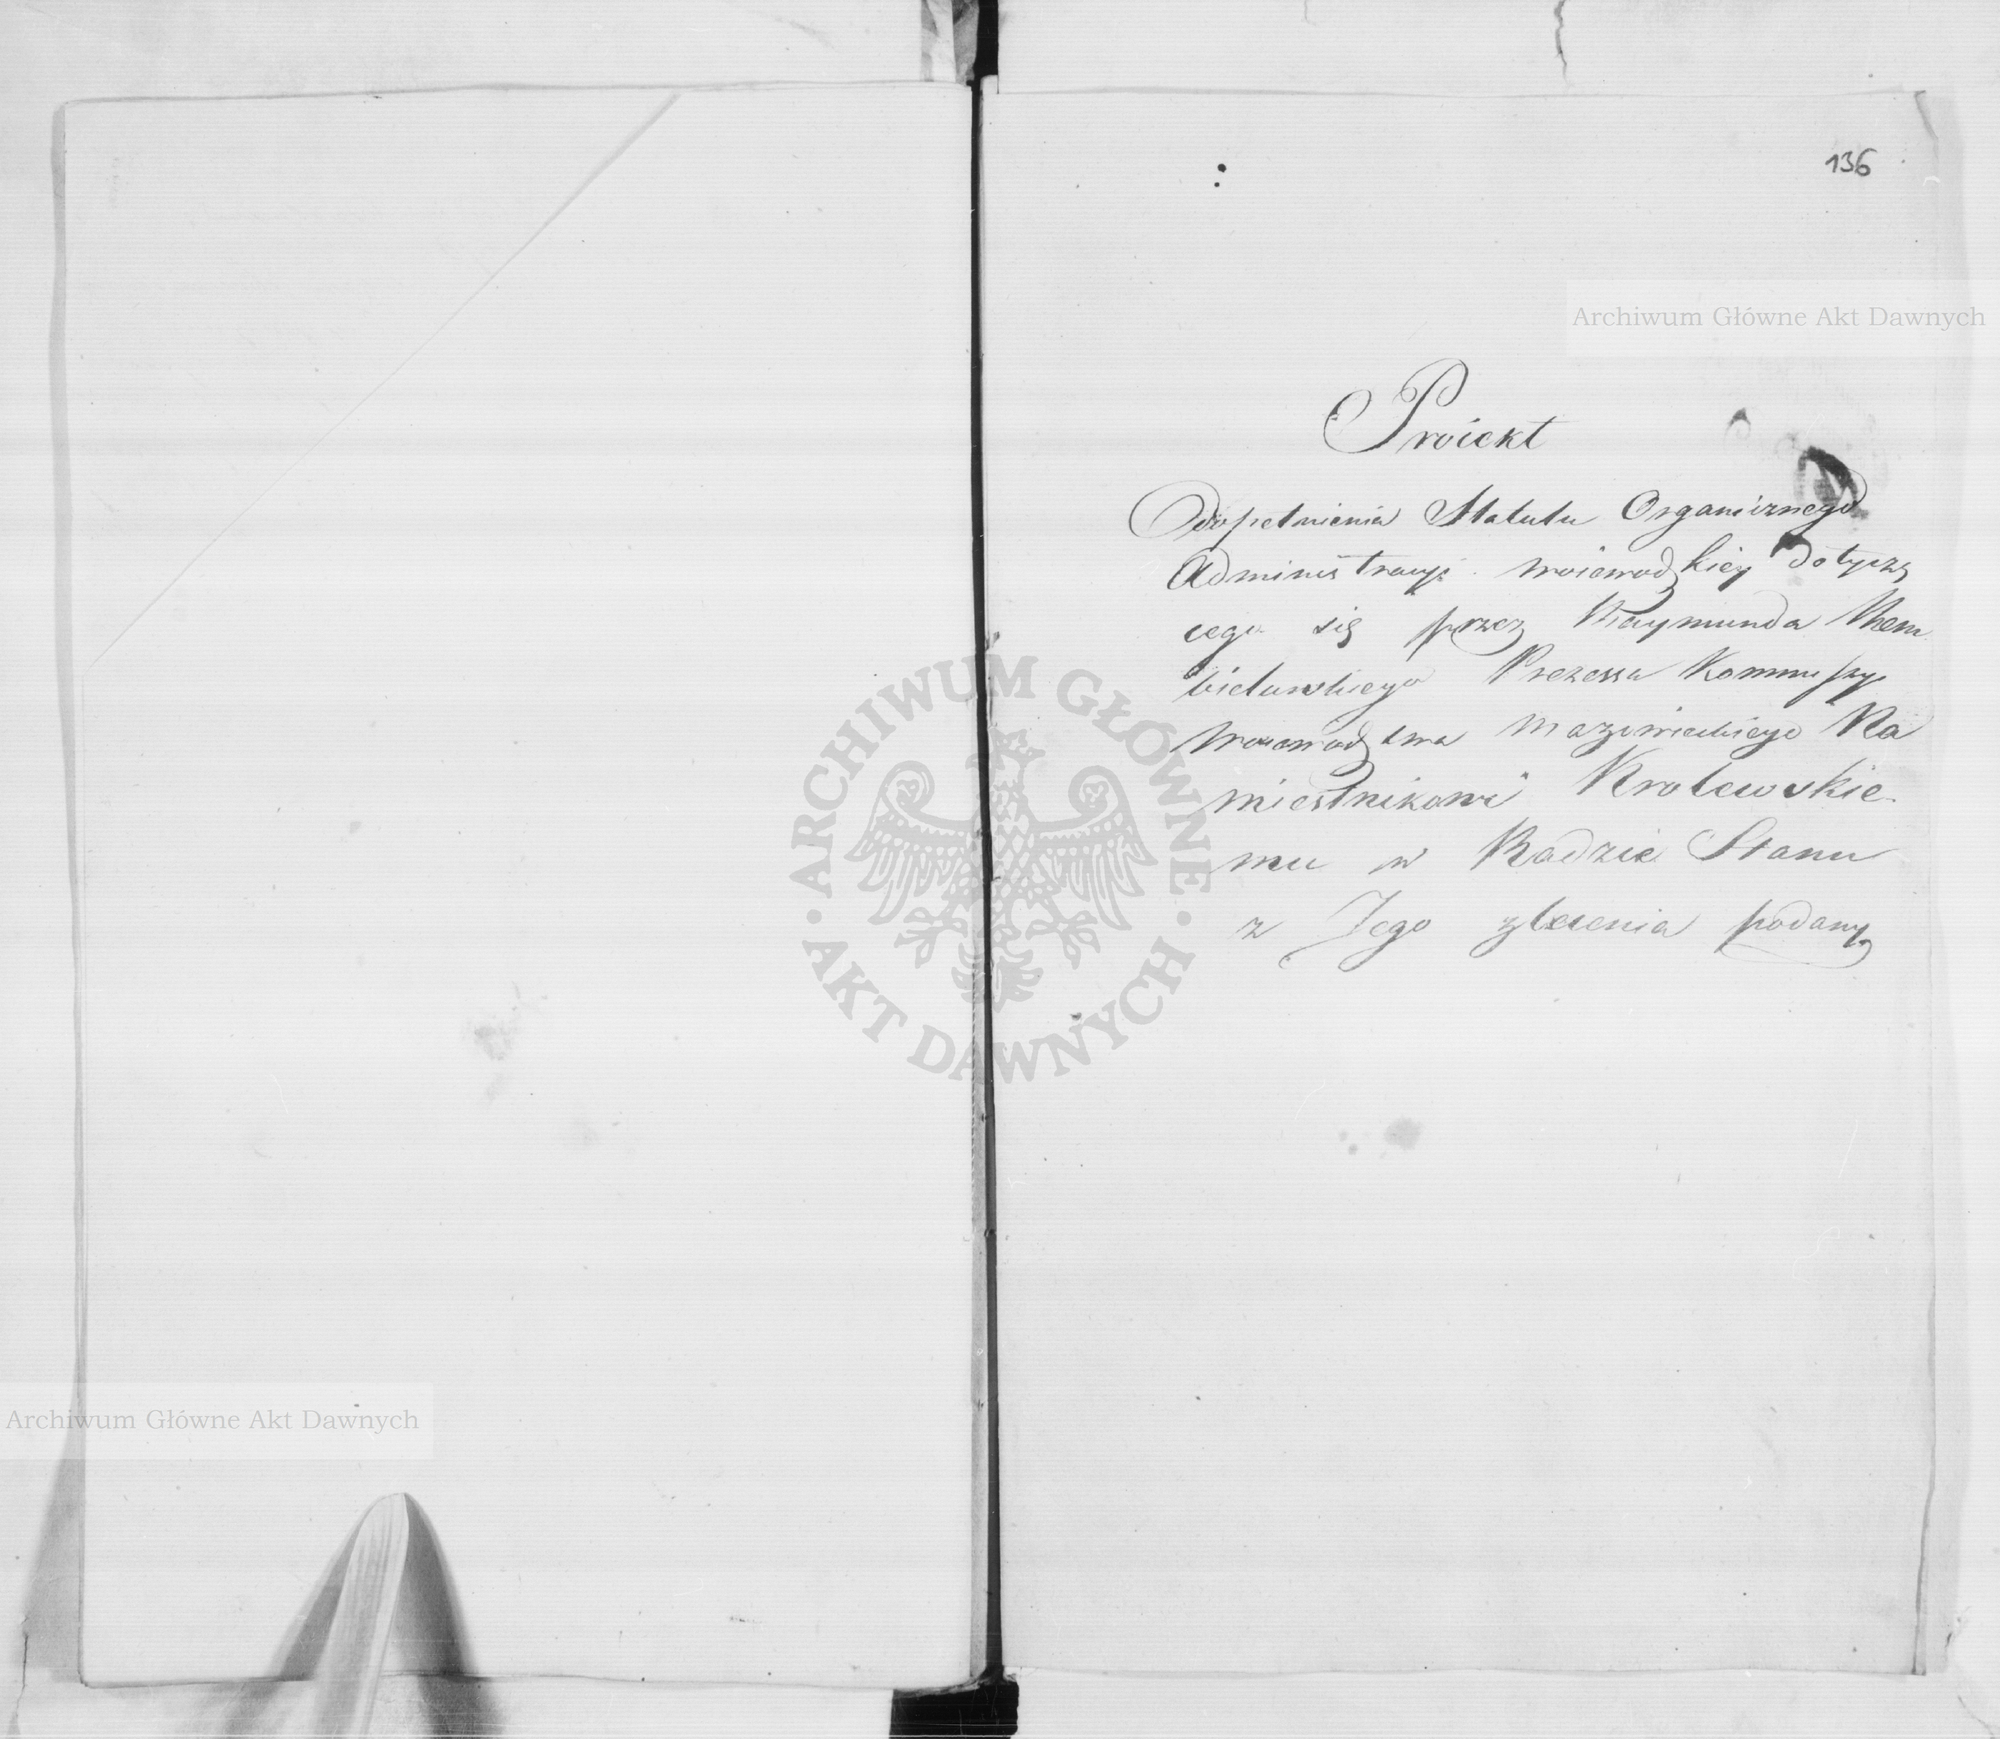 136
Archiwum Główne Akt Dawnych
Proiekt
dopełnienia Statutu Organicznego
Administracyi woiewodzkiey dotyczą
cego się przez Raymunda Rem
bielinskiego Prezessa Kommissyi
woiewodztwa mazowieckiego Na
miestnikowi Krolewskie
mu w Radzie Stanu
z Jego zlecenia podany
ARCHIWUM GŁÓWNE
AKT DAWNYCH
Archiwum Główne Akt Dawnych